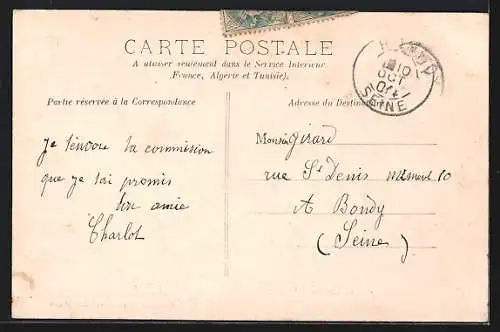 CARTE POSTALE
A utiliser seulement dans le Service Intérieur
(France, Algérie et Tunisie).
Partie réservée à la Correspondance
Adresse du Destinataire
10
OCT
04
SEINE
Je t'encore ta commission
que je tai promis
ton amie
Charlot
Monsieur Girard
rue St Denis 10
A Bondy
(Seine)